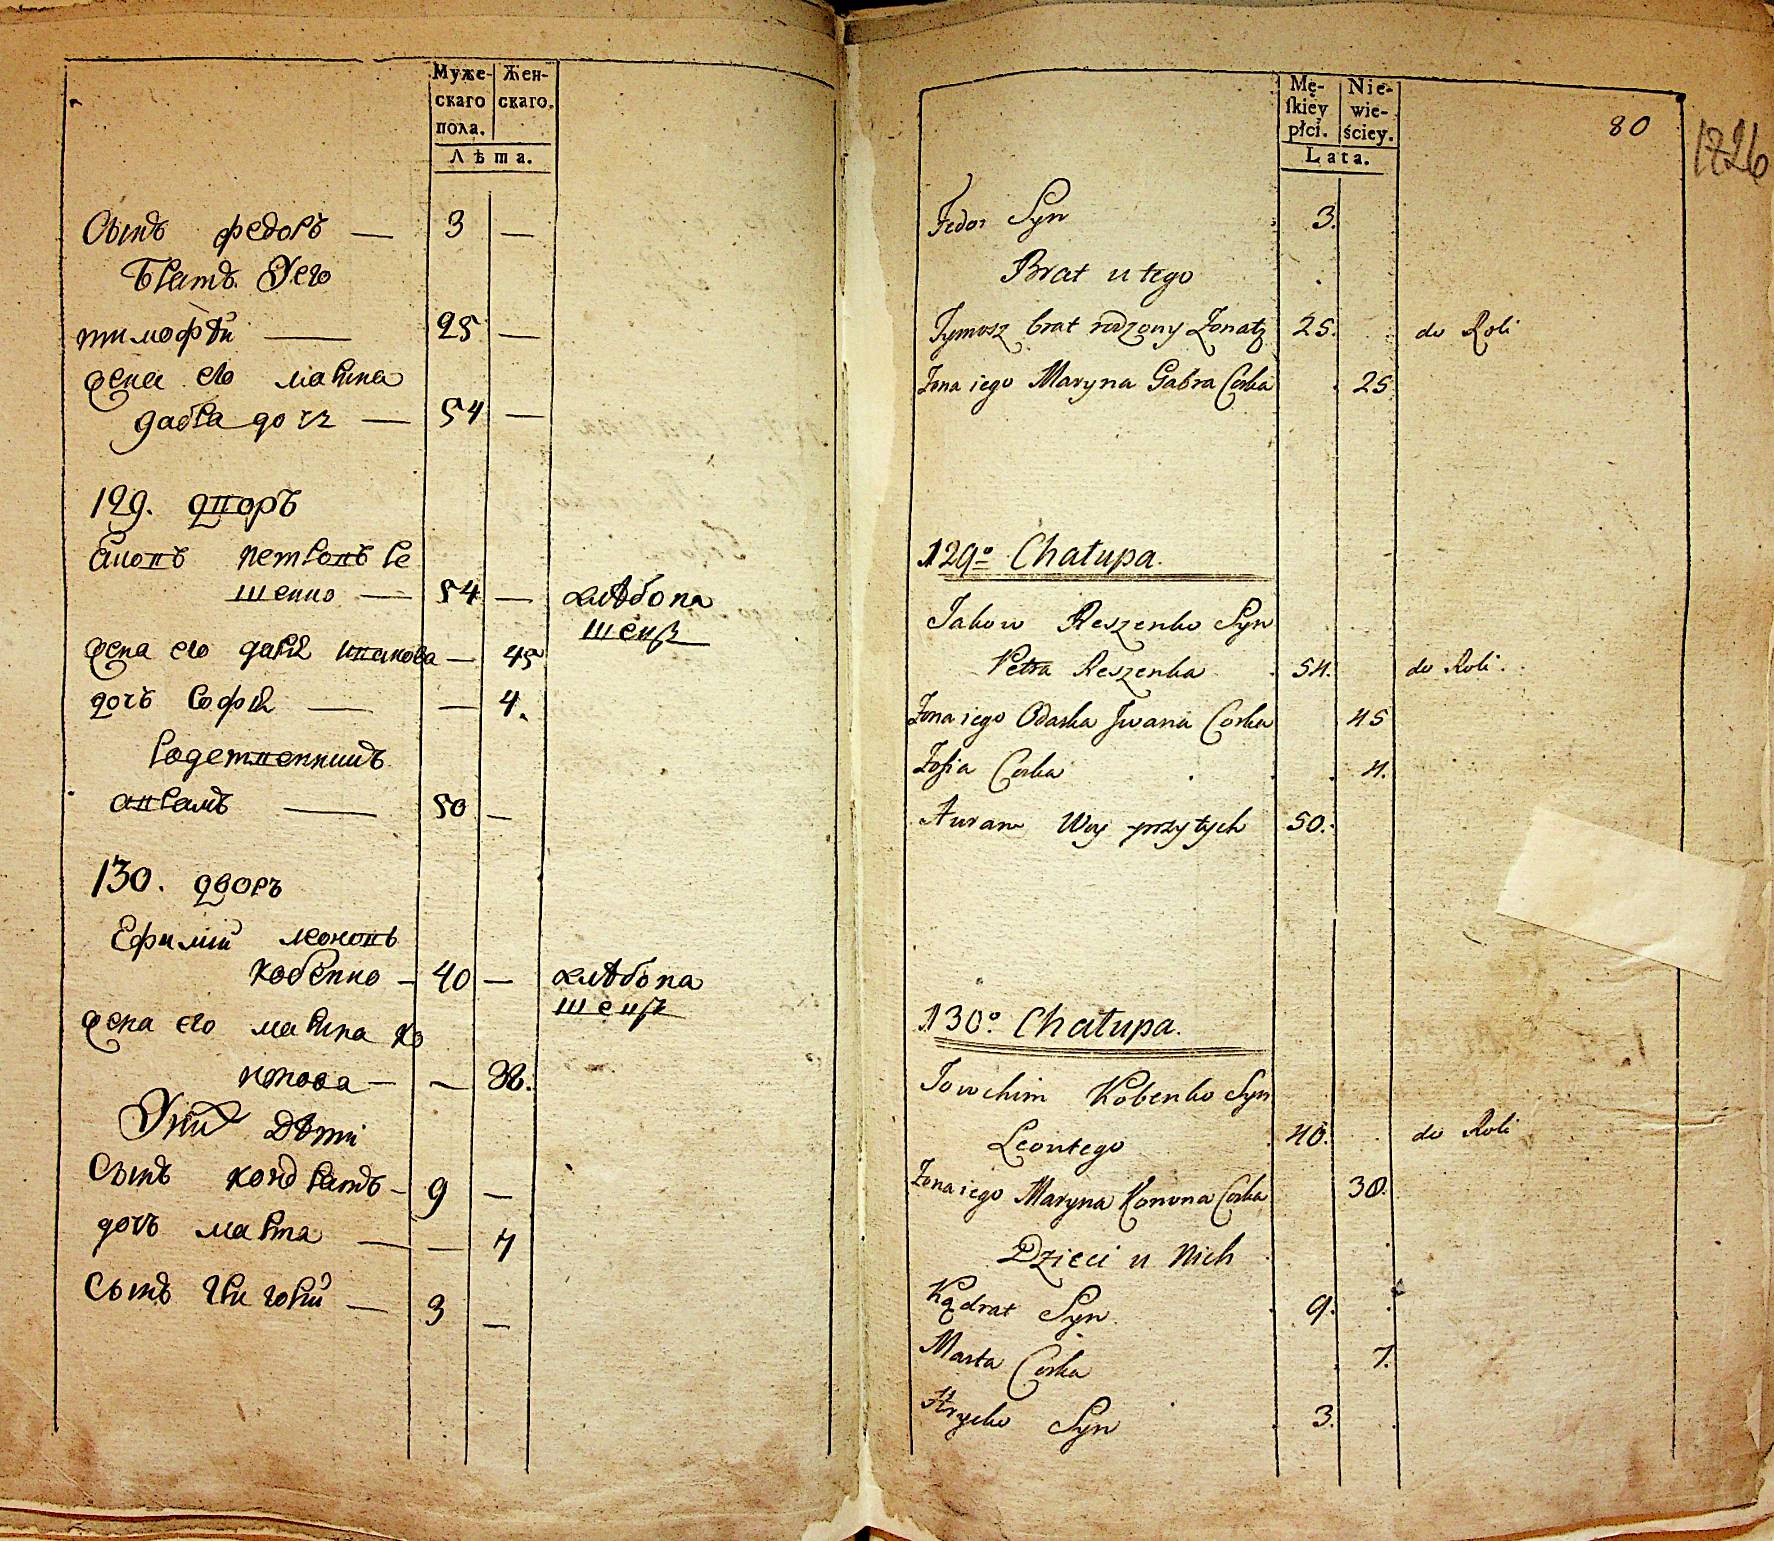 Муже-
скаго
пола.
Жен-
скаго.
Лѣта.
Сынъ федоръ — 3 —
Братъ Уего
тимофѣй — 25 —
жена его марина
габра дочъ — 54 —
129. дворъ
петровъ ре
шенко — 54 — хлѣбопа
шецъ
жена его — 45
дочъ софия — — 4.
родственникъ
аврамъ — 50 —
130. дворъ
Ефимий леоновъ
кобенко — 40 — хлѣбопа
шецъ
жена его марина ко
нонова — — 38.
Уних дѣти
Сынъ кондратъ — 9 —
дочъ марта — — 7
Сынъ григорий — 3 —
Mę-
skiey
płci.
Nie-
wie-
ściey.
Lata.
80
1726
Fedor Syn 3.
Brat u tego
Tymosz brat rodzony Żonaty 25. do Roli
Żona iego Maryna Gabra Corka 25
129o Chałupa.
Jakow Reszenko Syn
Petra Reszenka 54. do Roli.
Żona iego Odarka Iwana Corka 45
Zofia Corka 4.
Auram Wuy przy tych 50.
130o. Chałupa.
Jowchim Kobenko Syn
Leontego 40. do Roli
Żona iego Maryna Konona Corka 38.
Dzieci u Nich
Kądrat Syn 9.
Marta Corka 7.
Hrycko Syn 3.